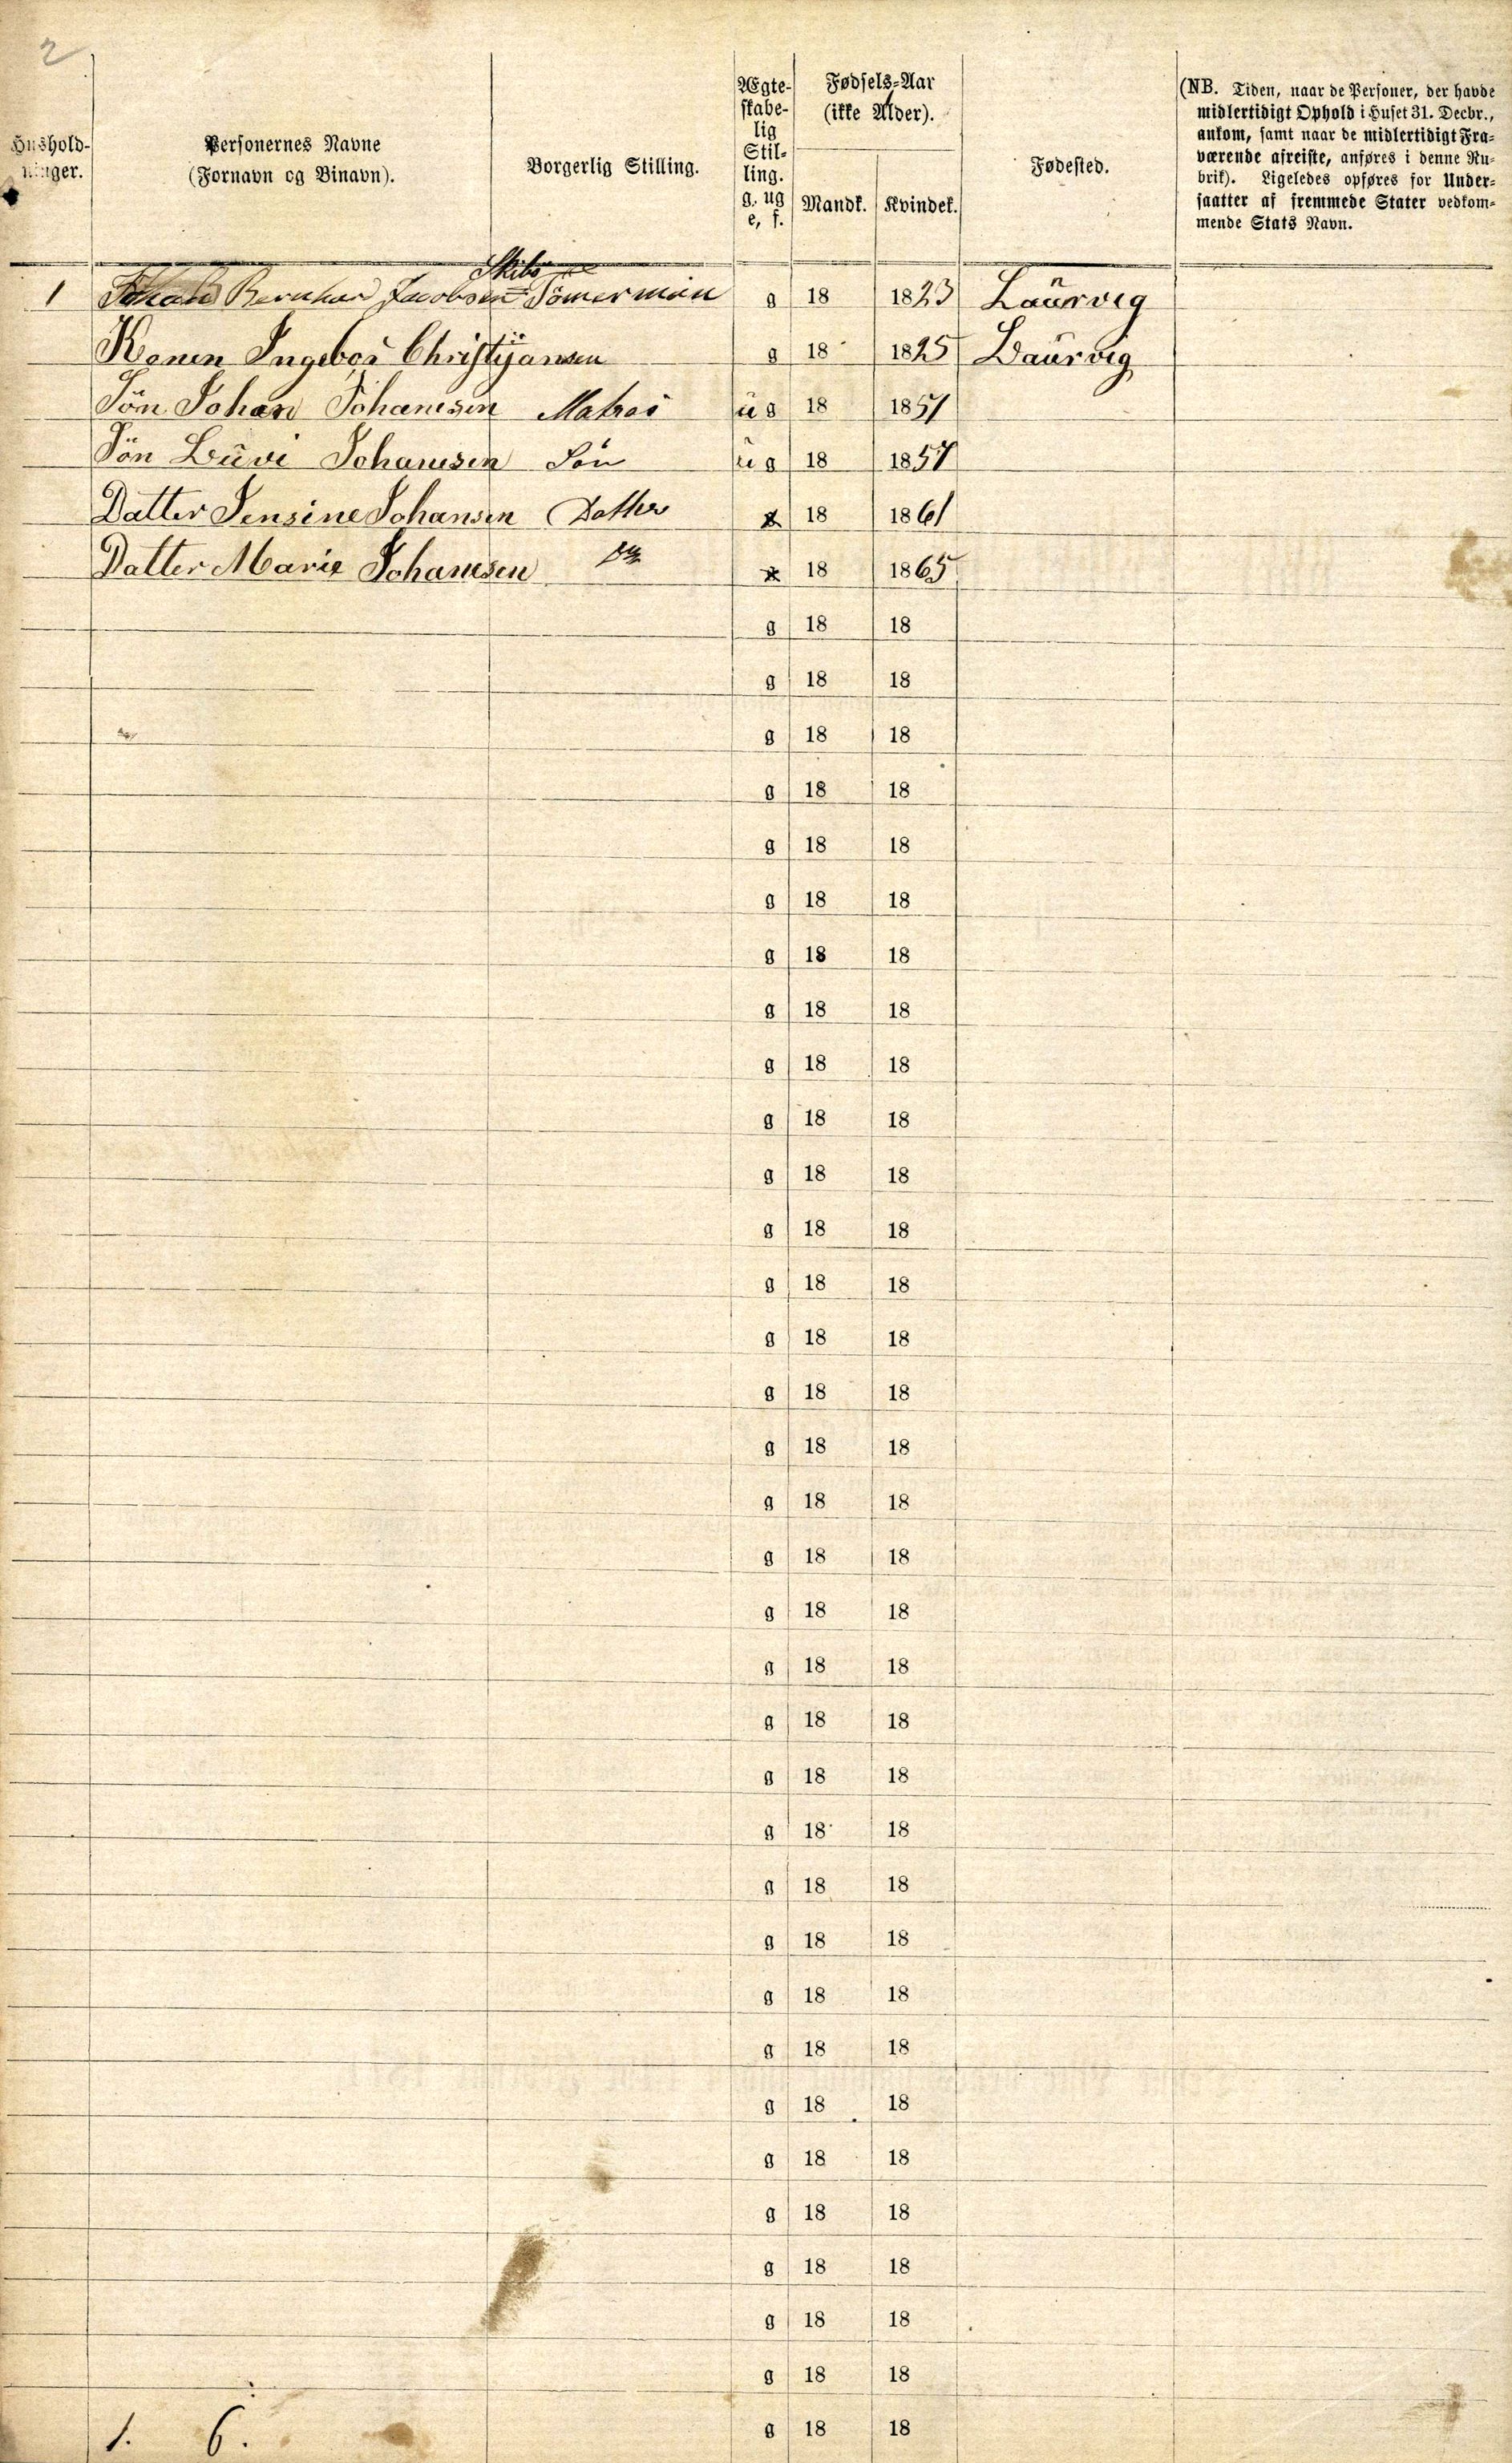 2
Hushold-
ninger.
Personernes Navne
(Fornavn og Binavn).
Borgerlig Stilling.
Ægte-
skabe-
lig
Stil-
ling.
g. ug
e, f.
Fødsels-Aar
(ikke Alder).
Mandk. Kvindek.
Fødested.
(NB. Tiden, naar de Personer, der havde
midlertidigt Ophold i Huset 31. Decbr.,
ankom, samt naar de midlertidigt Fra-
værende afreiste, anføres i denne Ru-
brik). Ligeledes opføres for Under-
saatter af fremmede Stater vedkom-
mende Stats Navn.
Skibs
1 Johan Bernhar Jacobsen Tömerman g 18 1823 Laŭrvig
Konen Ingebor Christijansen g 18 1825 Laŭrvig
Sön Johan Johannsen Matros ŭg 18 1851
Sön Lŭvi Johannsen Sön ŭg 18 1857
Datter Jensine Johansen Datter 18 1861
Datter Marie Johansen 18 1865
g 18 18
g 18 18
g 18 18
g 18 18
g 18 18
g 18 18
g 18 18
g 18 18
g 18 18
g 18 18
g 18 18
g 18 18
g 18 18
g 18 18
g 18 18
g 18 18
g 18 18
g 18 18
g 18 18
g 18 18
g 18 18
g 18 18
g 18 18
g 18 18
g 18 18
g 18 18
g 18 18
g 18 18
g 18 18
g 18 18
g 18 18
g 18 18
g 18 18
1. 6. g 18 18